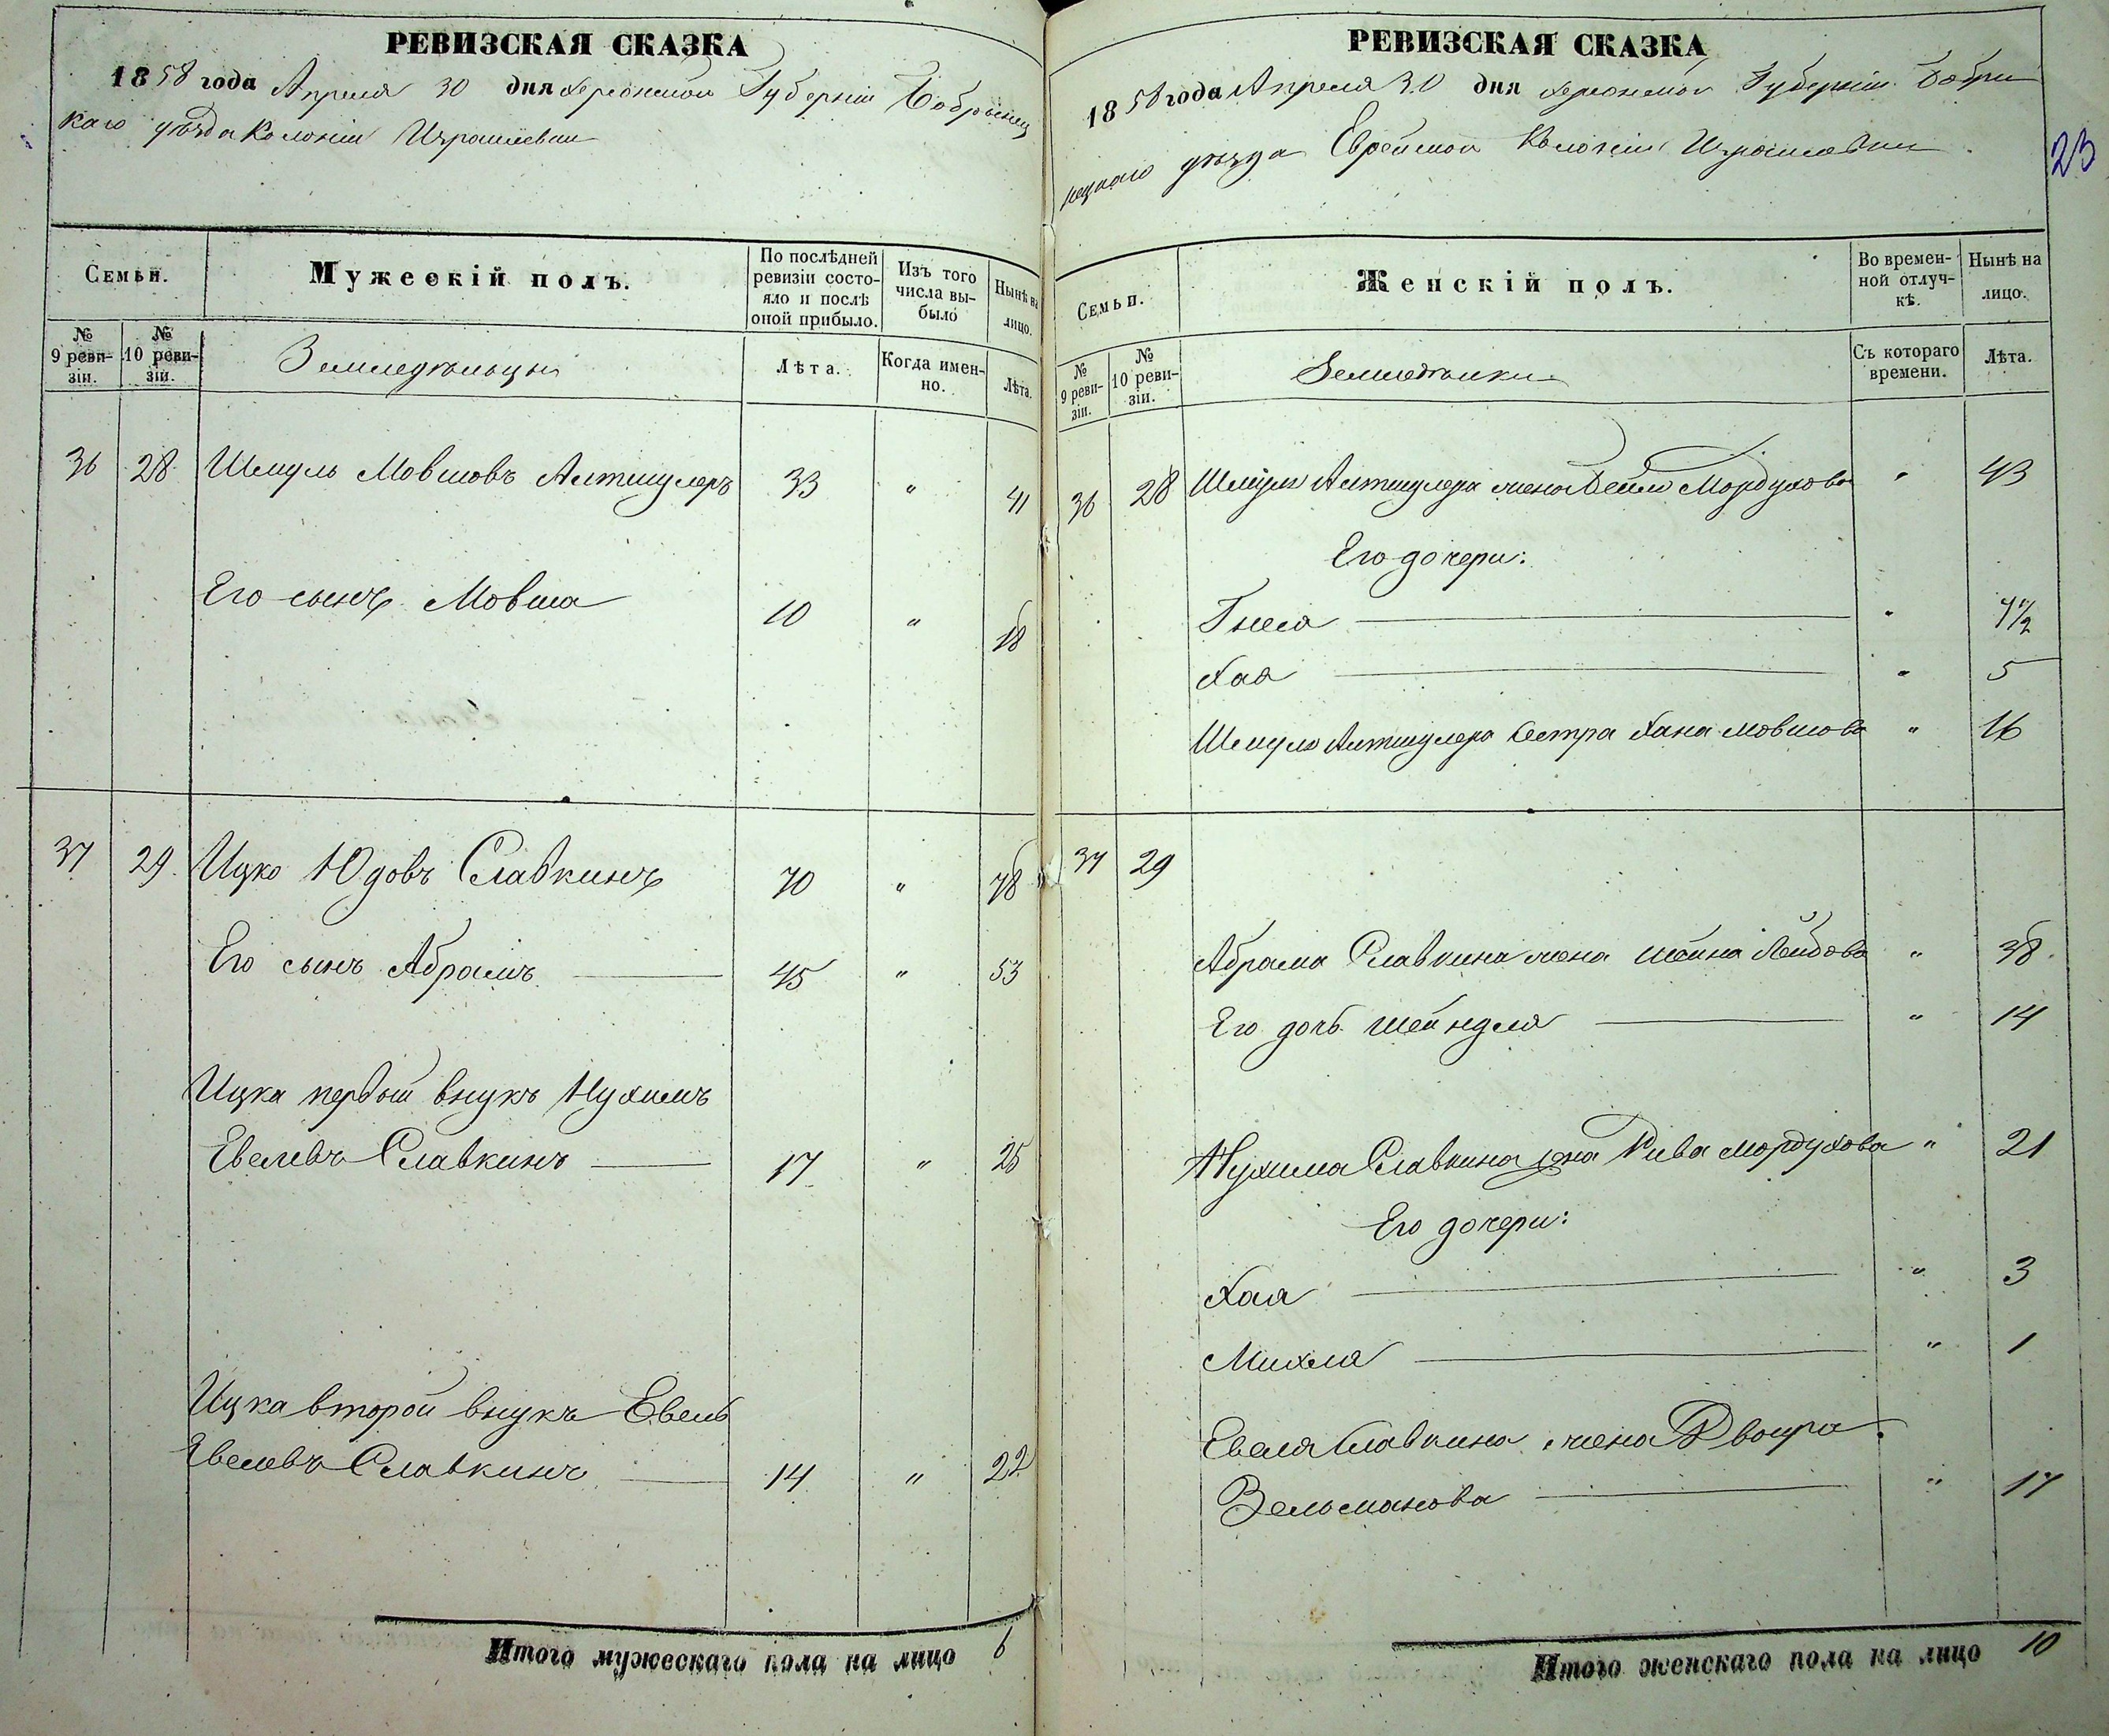 РЕВИЗСКАЯ СКАЗКА
1858 года Апреля 30 дня Херсонской Губерніи Бобринец
каго уѣзда Колоніи Израилевки
Семьи.
Мужескій полъ.
По послѣдней ревизіи состояло и послѣ оной прибыло.
Изъ того числа выбыло
Нынѣ на лицо.
№ 9 ревизіи.
№ 10 ревизіи.
Земледѣльцы
Лѣта.
Когда именно.
Лѣта.
36 28 Шмуль Мовшовъ Алтшулеръ 33 " 41
Его сынъ Мовша 10 " 18
37 29 Ицко Юдовъ Славкинъ 70 " 78
Его сынъ Абрамъ 45 " 53
Ицка первый внукъ Нухимъ
Евелевъ Славкинъ 17 " 25
Ицка второй внукъ Евель
Евелевъ Славкинъ 14 " 22
Итого мужескаго пола на лицо 6
РЕВИЗСКАЯ СКАЗКА
1858 года Апреля 30 дня Херсонской Губерніи Бобри
нецкаго уѣзда Еврейской Колоніи Израилевки
23
Семьи.
Женскій полъ.
Во временной отлучкѣ.
Нынѣ на лицо.
№ 9 ревизіи.
№ 10 ревизіи.
Земледѣлки
Съ котораго времени.
Лѣта.
36 28 Шмуля Алтшулера жена Бейла Мордухова " 43
Его дочери:
Гнеся " 7½
Хая " 5
Шмуля Алтшулера Сестра Хана Мовшова " 16
37 29
Абрама Славкина жена Шейна Лейбова " 38
Его дочь Шейндля " 14
Нухима Славкина жена Рива Мордухова " 21
Его дочери:
Хая " 3
Михля " 1
Евеля Славкина жена Двойра
Зельманова " 17
Итого женскаго пола на лицо 10